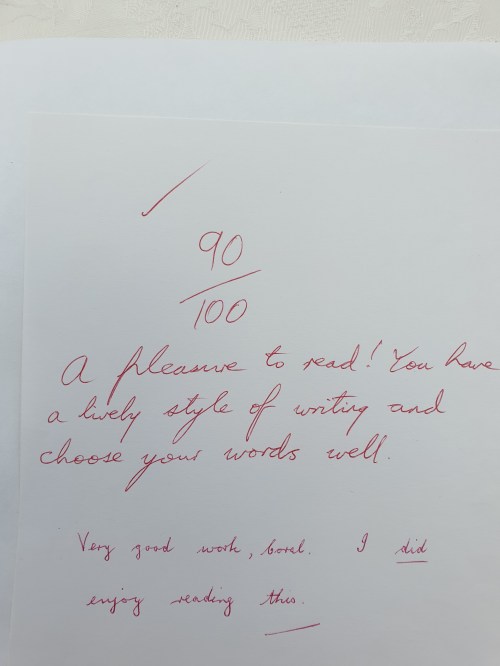 90
100
A pleasure to read! You have
a lively style of writing and
choose your words well.
Very good work, I did
enjoy reading this.